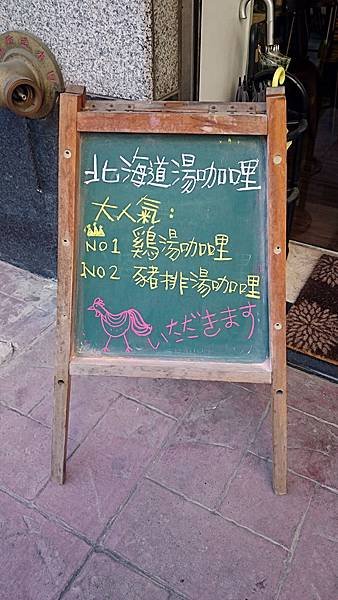 北海道湯咖哩
大人氣：
NO1 鷄湯咖哩
NO2 豬排湯咖哩
いただきます